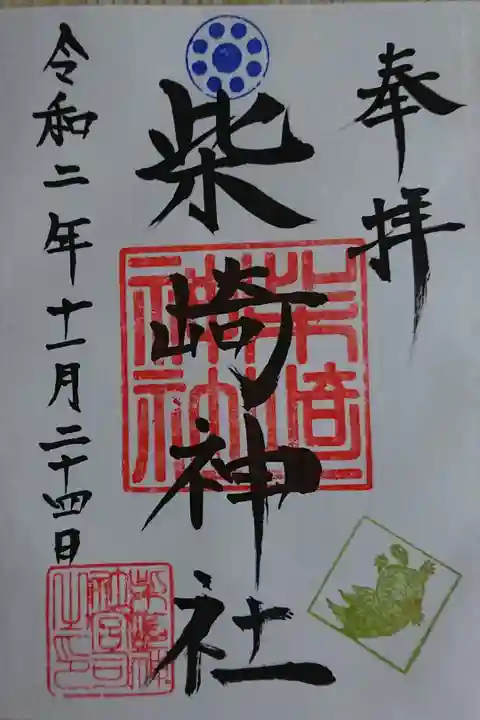 奉拝
柴崎神社
令和二年十一月二十四日
柴崎神社
柴崎神社宮司之印